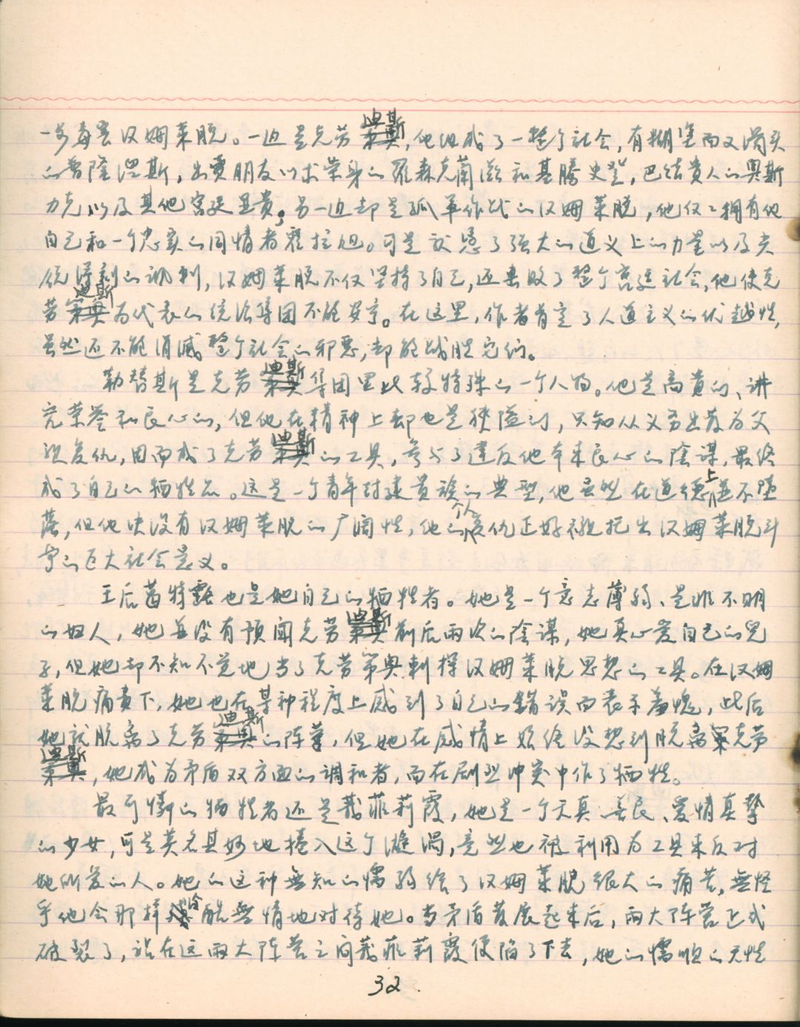 一步毒害汉姆莱脱。一边是克劳迪斯,他组成了一整个社会,有糊塗而又滑头
的普隆涅斯,出卖朋友以求荣身的罗森克兰滋和基腾史登,巴结贵人的奥斯
力克以及其他宫廷显贵;另一边却是孤军作战的汉姆莱脱,他仅仅拥有他
自己和一个忠实的同情者霍拉旭。可是凭惪了强大的道义上的力量以及尖
锐深刻的讽刺,汉姆莱脱不仅坚持了自己,还击败了整个宫廷社会,他使克
劳迪斯为代表的统治集团不能安享。在这里,作者肯定了人道主义的优越性,
虽然还不能消灭整个社会的邪恶,却能战胜它们。
勒替斯是克劳迪斯集团里比较特殊的一个人物。他是高貴的、讲
究荣誉和良心的,但他在精神上却也是狭隘的,只知从义务出发为父
親复仇,因而成了克劳迪斯的工具,参与了违反他本来良心的陰谋,最终
成了自己的牺牲品。这是一个青年封建貴族的典型,他虽然在道德上並不墮
落,但他决没有汉姆莱脱的广阔性,他的个人复仇正好襯托出汉姆莱脱斗
争的巨大社会意义。
王后茵特露也是她自己的牺牲者。她是一个意志薄弱、是非不明
的妇人,她並没有预闻克劳迪斯前后兩次的陰谋,她真心爱自己的兒
子,但她却不知不觉地当了克劳第奥刺探汉姆莱脱思想的工具。在汉姆
莱脱痛责下,她也在某种程度上感到了自己的錯误而表示羞愧,此后
她就脱离了克劳迪斯的阵营,但她在感情上始终没想到脱离克劳
迪斯,她成为矛盾双方面的調和者,而在剧烈冲突中作了牺牲。
最可憐的牺牲者还是莪菲莉霞,她是一个天真、善良、爱情真摯
的少女,可是莫名其妙地捲入这个漩渦,竟然也被利用为工具来反对
她所爱的人。她的这种無知的懦弱给了汉姆莱脱很大的痛苦,無怪
乎他会那样冷酷無情地对待她。当矛盾發展起来后,兩大阵营正式
破裂了,站在这兩大阵营之间莪菲莉霞便陷了下去,她的懦順的天性
32